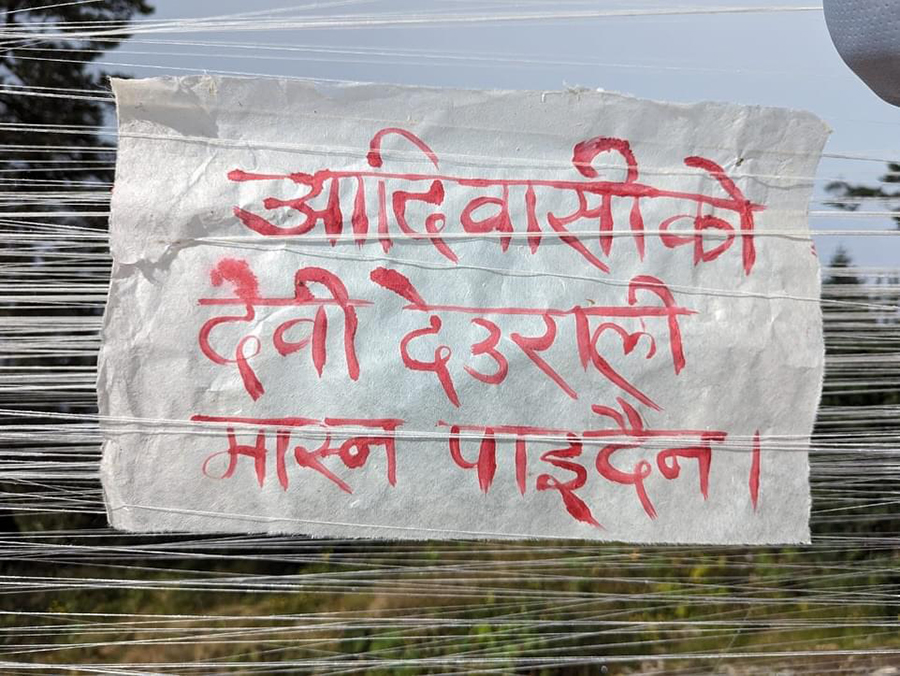 आदिवासीको
देवी देउराली
मास्न पाइदैन।